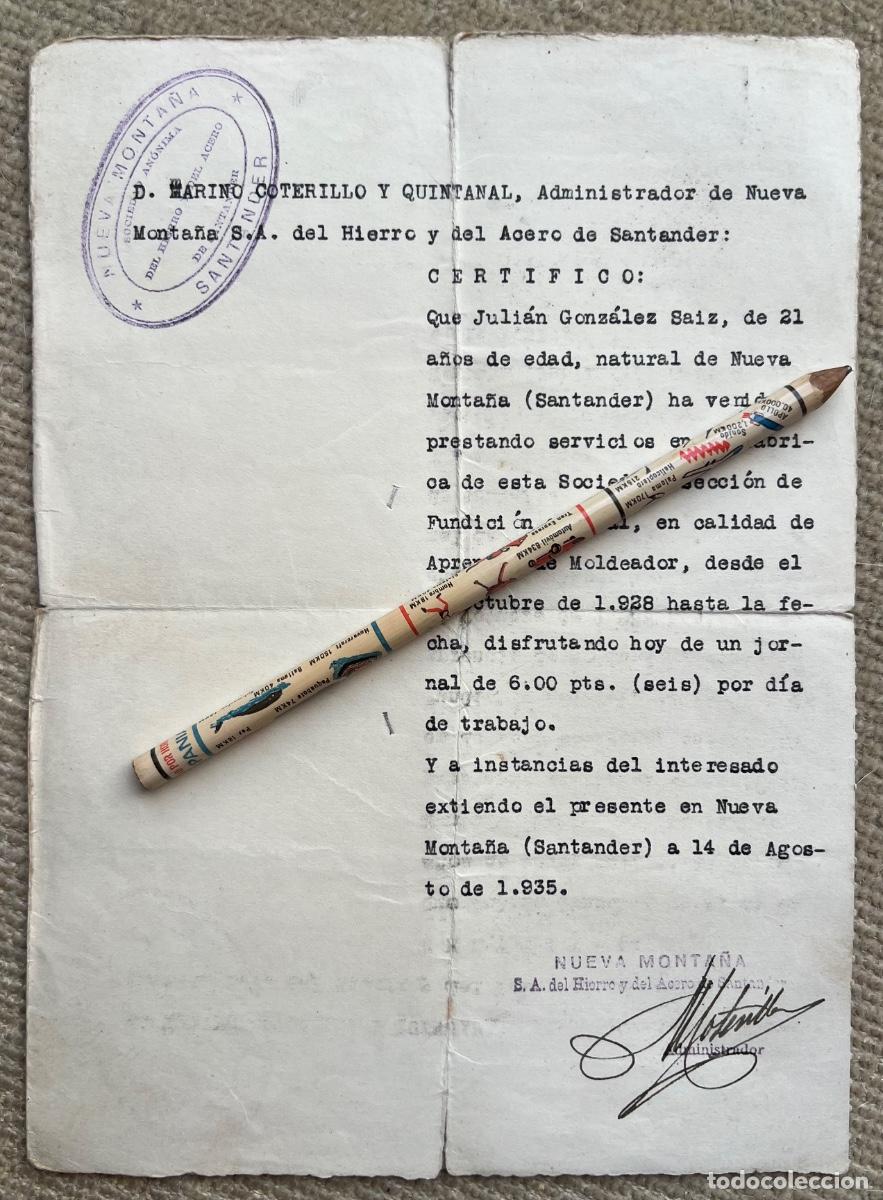 NUEVA MONTAÑA
SOCIEDAD ANÓNIMA
DEL HIERRO Y DEL ACERO
DE SANTANDER
SANTANDER
D. MARINO COTERILLO Y QUINTANAL, Administrador de Nueva
Montaña S.A. del Hierro y del Acero de Santander:
C E R T I F I C O:
Que Julián González Saiz, de 21
años de edad, natural de Nueva
Montaña (Santander) ha venido
prestando servicios en
ca de esta ección de
Fundición en calidad de
Moldeador, desde el
ctubre de 1.928 hasta la fe-
cha, disfrutando hoy de un jor-
nal de 6.00 pts. (seis) por día
de trabajo.
Y a instancias del interesado
extiendo el presente en Nueva
Montaña (Santander) a 14 de Agos-
to de 1.935.
NUEVA MONTAÑA
S. A. del Hierro y del Acero de Santander
MCoterillo
Administrador
APOLLO
40.000KM
Sonido
1.200KM
Paloma 70KM
Helicoptero 218KM
Automóvil 634KM
Hombre 18KM
Hovercraft 150KM
Ballena 40KM
Paquebote 74KM
Pez 18KM
POR HO
PANI
todocoleccion